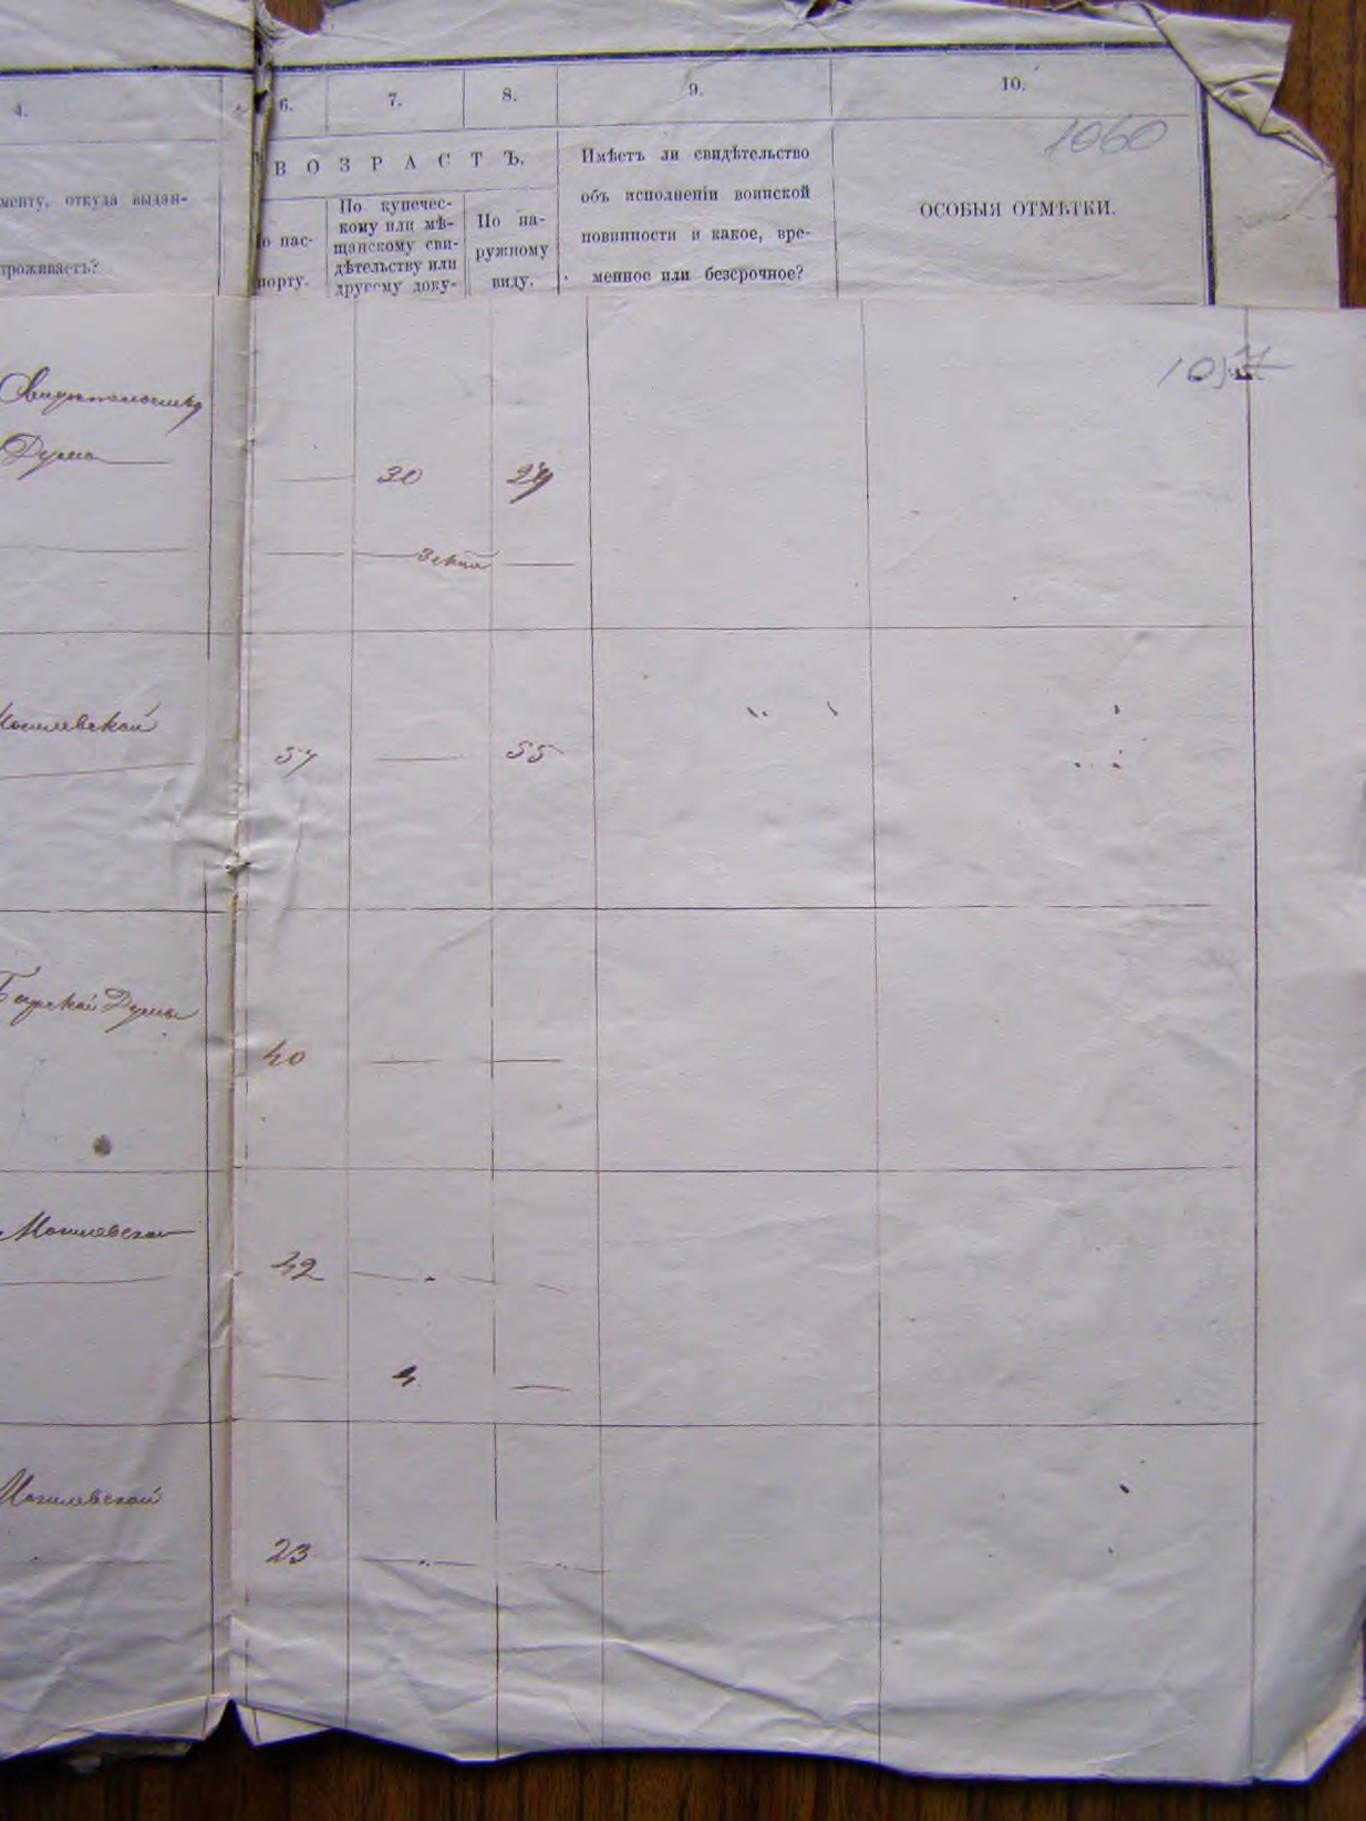 4.
6.
7.
8.
9.
10.
1060
ВОЗРАСТЪ.
менту, откуда выдан-
проживаетъ?
о пас-
порту.
По купечес-
кому или мѣ-
щанскому сви-
дѣтельству или
другому доку-
По на-
ружному
виду.
Имѣетъ ли свидѣтельство
объ исполненіи воинской
повинности и какое, вре-
менное или безсрочное?
ОСОБЫЯ ОТМѢТКИ.
Дума
30
29
Могилевской
57
55
Барской Думы
40
Могилевской
42
4
Могилевской
23